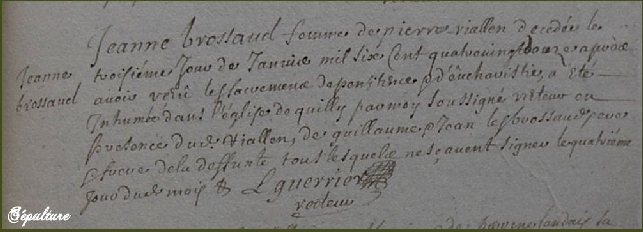 Jeanne brossaud femme de pierre viallen decedée le
Jeanne brossaud
troisiéme Jour de Januier mil six Cent quatrouingt douze apres
auoir receu les sacremens de penitence & d'euchavistie, a eté
Inhumée dans l'église de quilly par moy soussigné recteur en
presence dud. viallen, de guillaume & Jean les brossauds pere
& frere de la deffunte tous lesquels ne sçauent signer le quatriéme
Jour dud. mois &
L guerrier
recteur
Sépulture